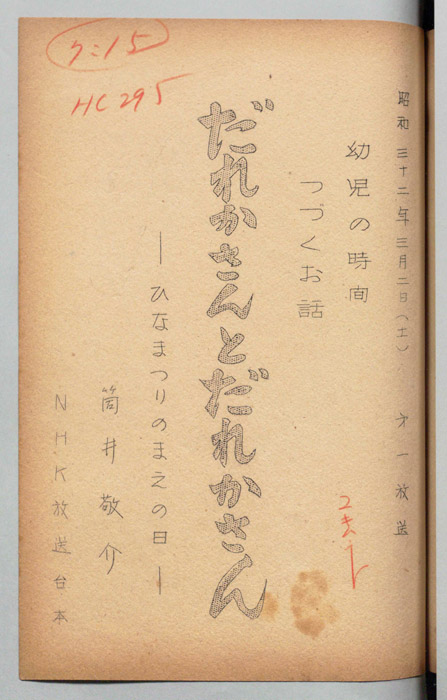 昭和三十二年三月二日(土) 才一放送
幼児の時間
つづくお話
だれかさんとだれかさん
―ひなまつりのまえの日―
筒井敬介
NHK放送台本
HC295